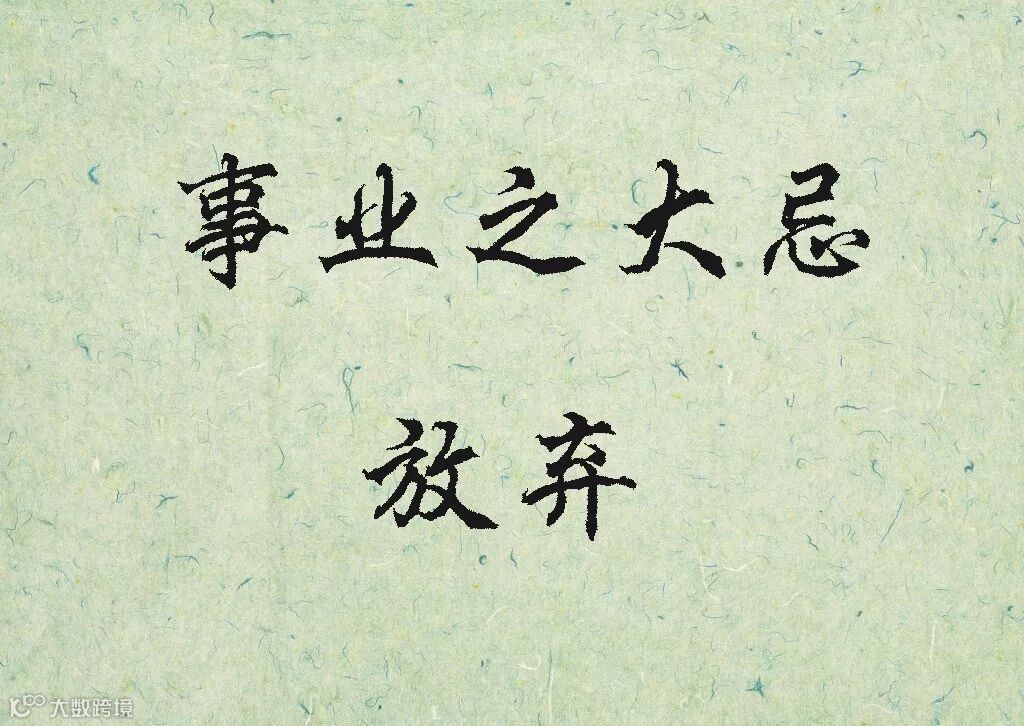 事业之大忌
放弃
大数跨境